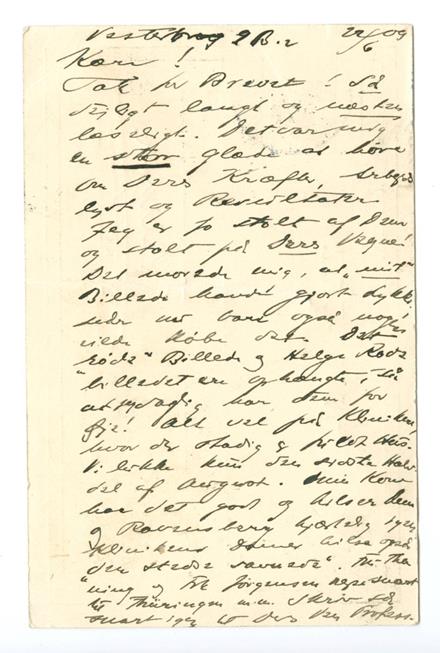 Vesterbrog 9 B. 2 22/6 09
Kære !
Tak for Brevet! Så
dejligt langt og næsten
læseligt. Det var mig
en stor glæde at høre
om Deres Kræfter, Arbejds
lyst og Resultater.
Jeg er jo stolt af Dem
og stolt på Deres Vegne!
Det morede mig, at "mit"
Billede havde gjort Lykke,
nu bare også nogen
vilde købe det. Det
røde" Billede og Helge Rode
billedet er ophængte, så
at jeg daglig har Dem for
Øje! Alt vel på Kliniken,
hvor der stadig er fuldt Hus.
Vi lukke kun den sidste Halv
del af August. Min Kone
har det godt og hilser Dem
og Ravensberg hjertelig igen
Klinikens Damer hilse også
"den stedse savnede".
og Frk Jørgensen rejse snart
til Thüringen m.m. Skriv så
snart igen til Deres Ven Profess.